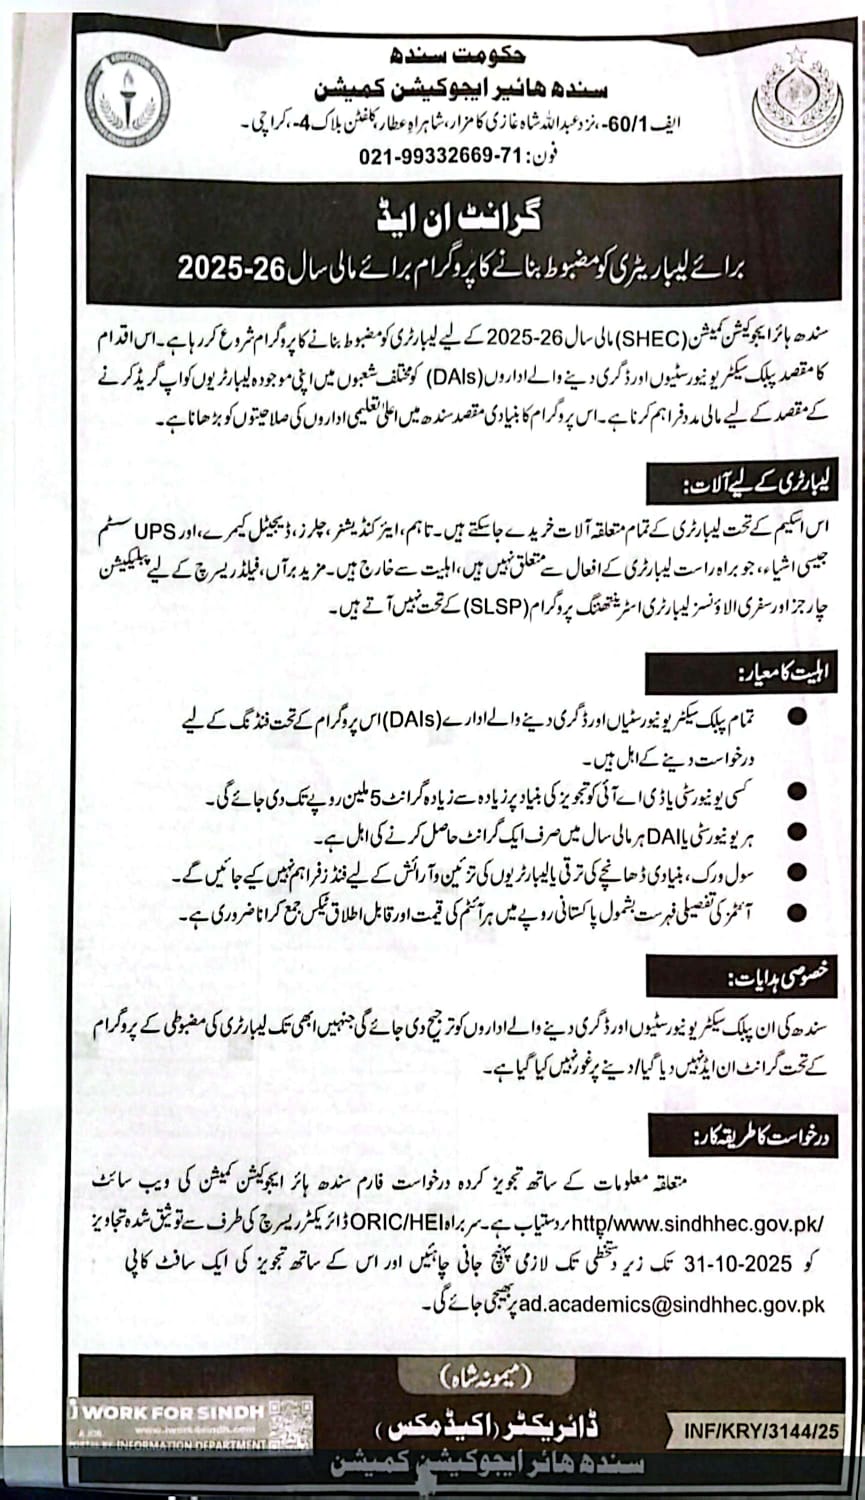 حکومت سندھ
سندھ ہائیر ایجوکیشن کمیشن
ایف 60/1-، نزد عبداللہ شاہ غازی کا مزار، شاہراہِ عطار، کلفٹن بلاک 4-، کراچی۔
فون: 021-99332669-71
گرانٹ ان ایڈ
برائے لیباریٹری کو مضبوط بنانے کا پروگرام برائے مالی سال 2025-26
سندھ ہائر ایجوکیشن کمیشن (SHEC) مالی سال 2025-26 کے لیے لیبارٹری کو مضبوط بنانے کا پروگرام شروع کر رہا ہے۔ اس اقدام
کا مقصد پبلک سیکٹر یونیورسٹیوں اور ڈگری دینے والے اداروں (DAIs) کو مختلف شعبوں میں اپنی موجودہ لیبارٹریوں کو اپ گریڈ کرنے
کے مقصد کے لیے مالی مدد فراہم کرنا ہے۔ اس پروگرام کا بنیادی مقصد سندھ میں اعلیٰ تعلیمی اداروں کی صلاحیتوں کو بڑھانا ہے۔
لیبارٹری کے لیے آلات:
اس اسکیم کے تحت لیبارٹری کے تمام متعلقہ آلات خریدے جا سکتے ہیں۔ تاہم، ایئر کنڈیشنر، چلرز، ڈیجیٹل کیمرے، اور UPS سسٹم
جیسی اشیاء، جو براہ راست لیبارٹری کے افعال سے متعلق نہیں ہیں، اہلیت سے خارج ہیں۔ مزید برآں، فیلڈ ریسرچ کے لیے پبلیکیشن
چارجز اور سفری الاؤنسز لیبارٹری اسٹرینتھننگ پروگرام (SLSP) کے تحت نہیں آتے ہیں۔
اہلیت کا معیار:
● تمام پبلک سیکٹر یونیورسٹیاں اور ڈگری دینے والے ادارے (DAIs) اس پروگرام کے تحت فنڈنگ کے لیے
درخواست دینے کے اہل ہیں۔
● کسی یونیورسٹی یا ڈی اے آئی کو تجویز کی بنیاد پر زیادہ سے زیادہ گرانٹ 5 ملین روپے تک دی جائے گی۔
● ہر یونیورسٹی یا DAI ہر مالی سال میں صرف ایک گرانٹ حاصل کرنے کی اہل ہے۔
● سول ورک، بنیادی ڈھانچے کی ترقی یا لیبارٹریوں کی تزئین و آرائش کے لیے فنڈز فراہم نہیں کیے جائیں گے۔
● آئٹمز کی تفصیلی فہرست بشمول پاکستانی روپے میں ہر آئٹم کی قیمت اور قابل اطلاق ٹیکس جمع کرانا ضروری ہے۔
خصوصی ہدایات:
سندھ کی ان پبلک سیکٹر یونیورسٹیوں اور ڈگری دینے والے اداروں کو ترجیح دی جائے گی جنہیں ابھی تک لیبارٹری کی مضبوطی کے پروگرام
کے تحت گرانٹ ان ایڈ نہیں دیا گیا/ دینے پر غور نہیں کیا گیا ہے۔
درخواست کا طریقہ کار:
متعلقہ معلومات کے ساتھ تجویز کردہ درخواست فارم سندھ ہائر ایجوکیشن کمیشن کی ویب سائٹ
http/www.sindhhec.gov.pk/ پر دستیاب ہے۔ سربراہ ORIC/HEI ڈائریکٹر ریسرچ کی طرف سے توثیق شدہ تجاویز
کو 31-10-2025 تک زیر دستخطی تک لازمی پہنچ جانی چاہئیں اور اس کے ساتھ تجویز کی ایک سافٹ کاپی
ad.academics@sindhhec.gov.pk پر بھیجی جائے گی۔
(میمونہ شاہ)
ڈائریکٹر (اکیڈمکس)
سندھ ہائر ایجوکیشن کمیشن
INF/KRY/3144/25
WORK FOR SINDH
INFORMATION DEPARTMENT